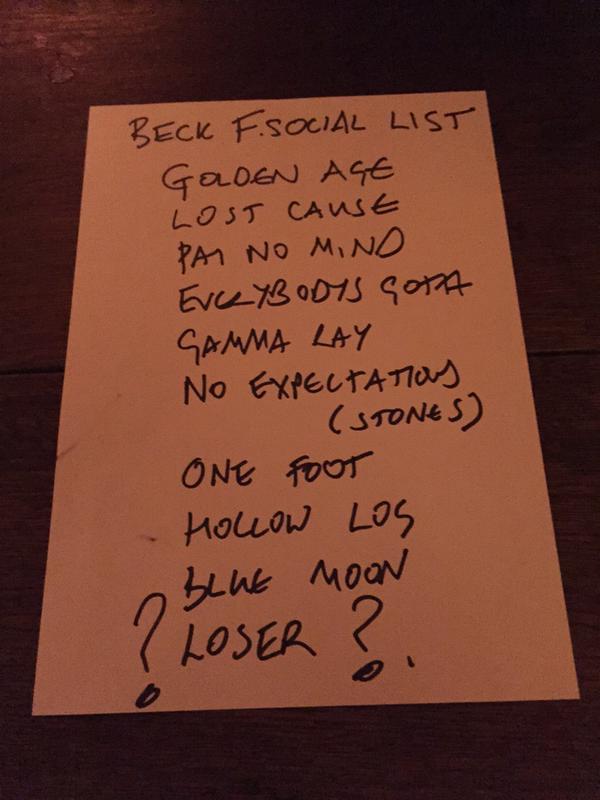 BECK F.SOCIAL LIST
GOLDEN AGE
LOST CAUSE
PAY NO MIND
EVERYBODYS GOTTA
GAMMA RAY
NO EXPECTATIONS
(STONES)
ONE FOOT
HOLLOW LOG
BLUE MOON
? LOSER ?.